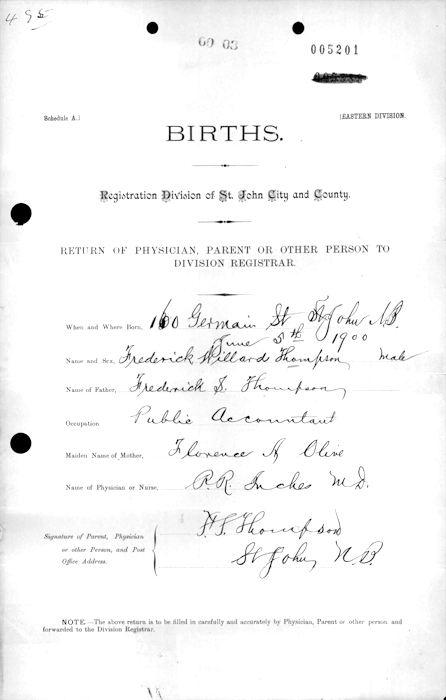 495
60 03
005201
Schedule A.]
[EASTERN DIVISION.
BIRTHS.
Registration Division of St. John City and County.
RETURN OF PHYSICIAN, PARENT OR OTHER PERSON TO
DIVISION REGISTRAR.
When and Where Born, 160 Germain St St John N.B.
June 5th 1900
Name and Sex, Frederick Willard Thompson, Male
Name of Father, Frederick S. Thompson
Occupation Public Accountant
Maiden Name of Mother, Florence A Olive
Name of Physician or Nurse, P.R. Inches M.D.
Signature of Parent, Physician
or other Person, and Post
Office Address.
F.S. Thompson
St John, N.B.
NOTE.—The above return is to be filled in carefully and accurately by Physician, Parent or other person and
forwarded to the Division Registrar.